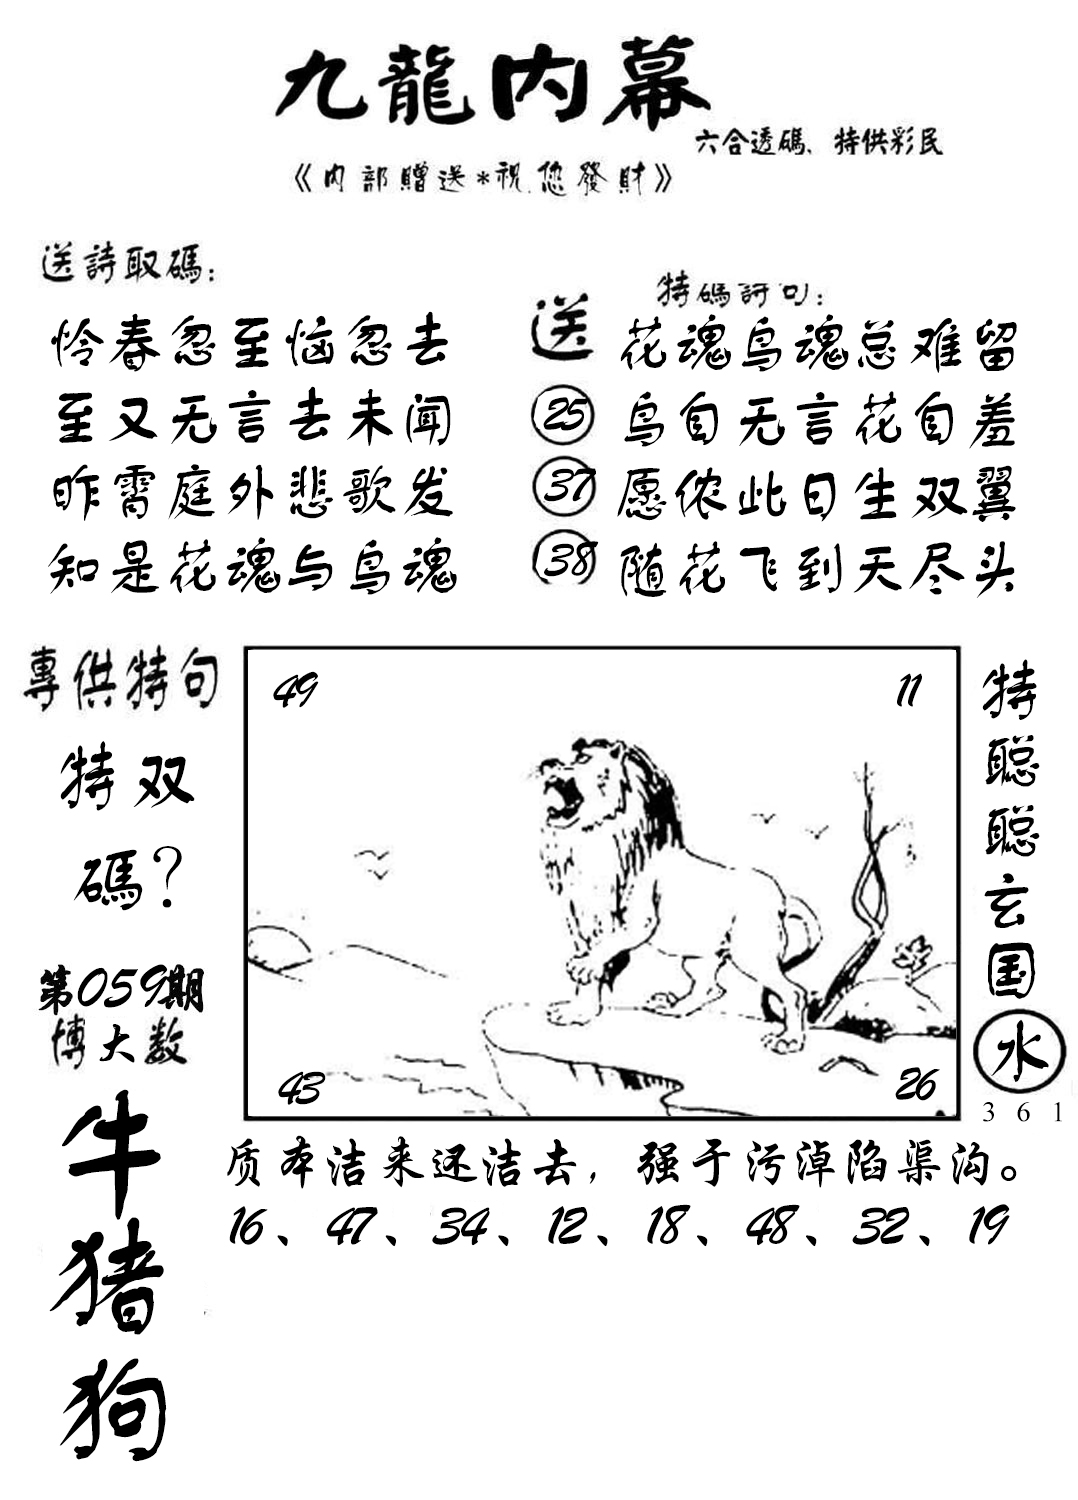 九龍内幕
六合透碼、特供彩民
《内部贈送*祝您發財》
送詩取碼：
怜春忽至恼忽去
至又无言去未闻
昨霄庭外悲歌发
知是花魂与鸟魂
送
25
37
38
特碼詩句：
花魂鸟魂总难留
鸟自无言花自羞
愿侬此日生双翼
随花飞到天尽头
專供特句
特双
碼？
第059期
博大数
牛
猪
狗
49
11
43
26
特聪聪玄国水
361
质本洁来还洁去，强于污淖陷渠沟。
16、47、34、12、18、48、32、19